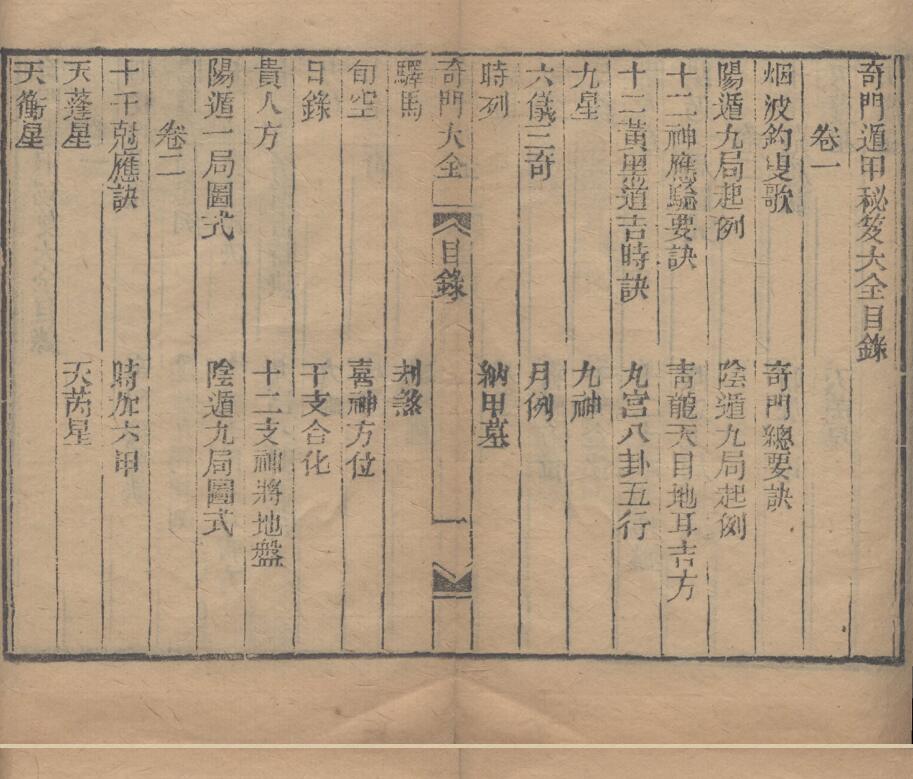 奇門遁甲秘笈大全目錄
卷一
烟波釣叟歌 奇門總要訣
陽遁九局起例 陰遁九局起例
十二神應驗要訣 靑龍天目地耳吉方
十二黃黑道吉時訣 九宮八卦五行
九星 九神
六儀三奇 月例
時列 納甲墓
奇門大全 目錄 一
驛馬 刦煞
旬空 喜神方位
日錄 干支合化
貴人方 十二支神將地盤
陽遁一局圖式 陰遁九局圖式
卷二
十干尅應訣 時加六甲
天蓬星 天芮星
天衝星